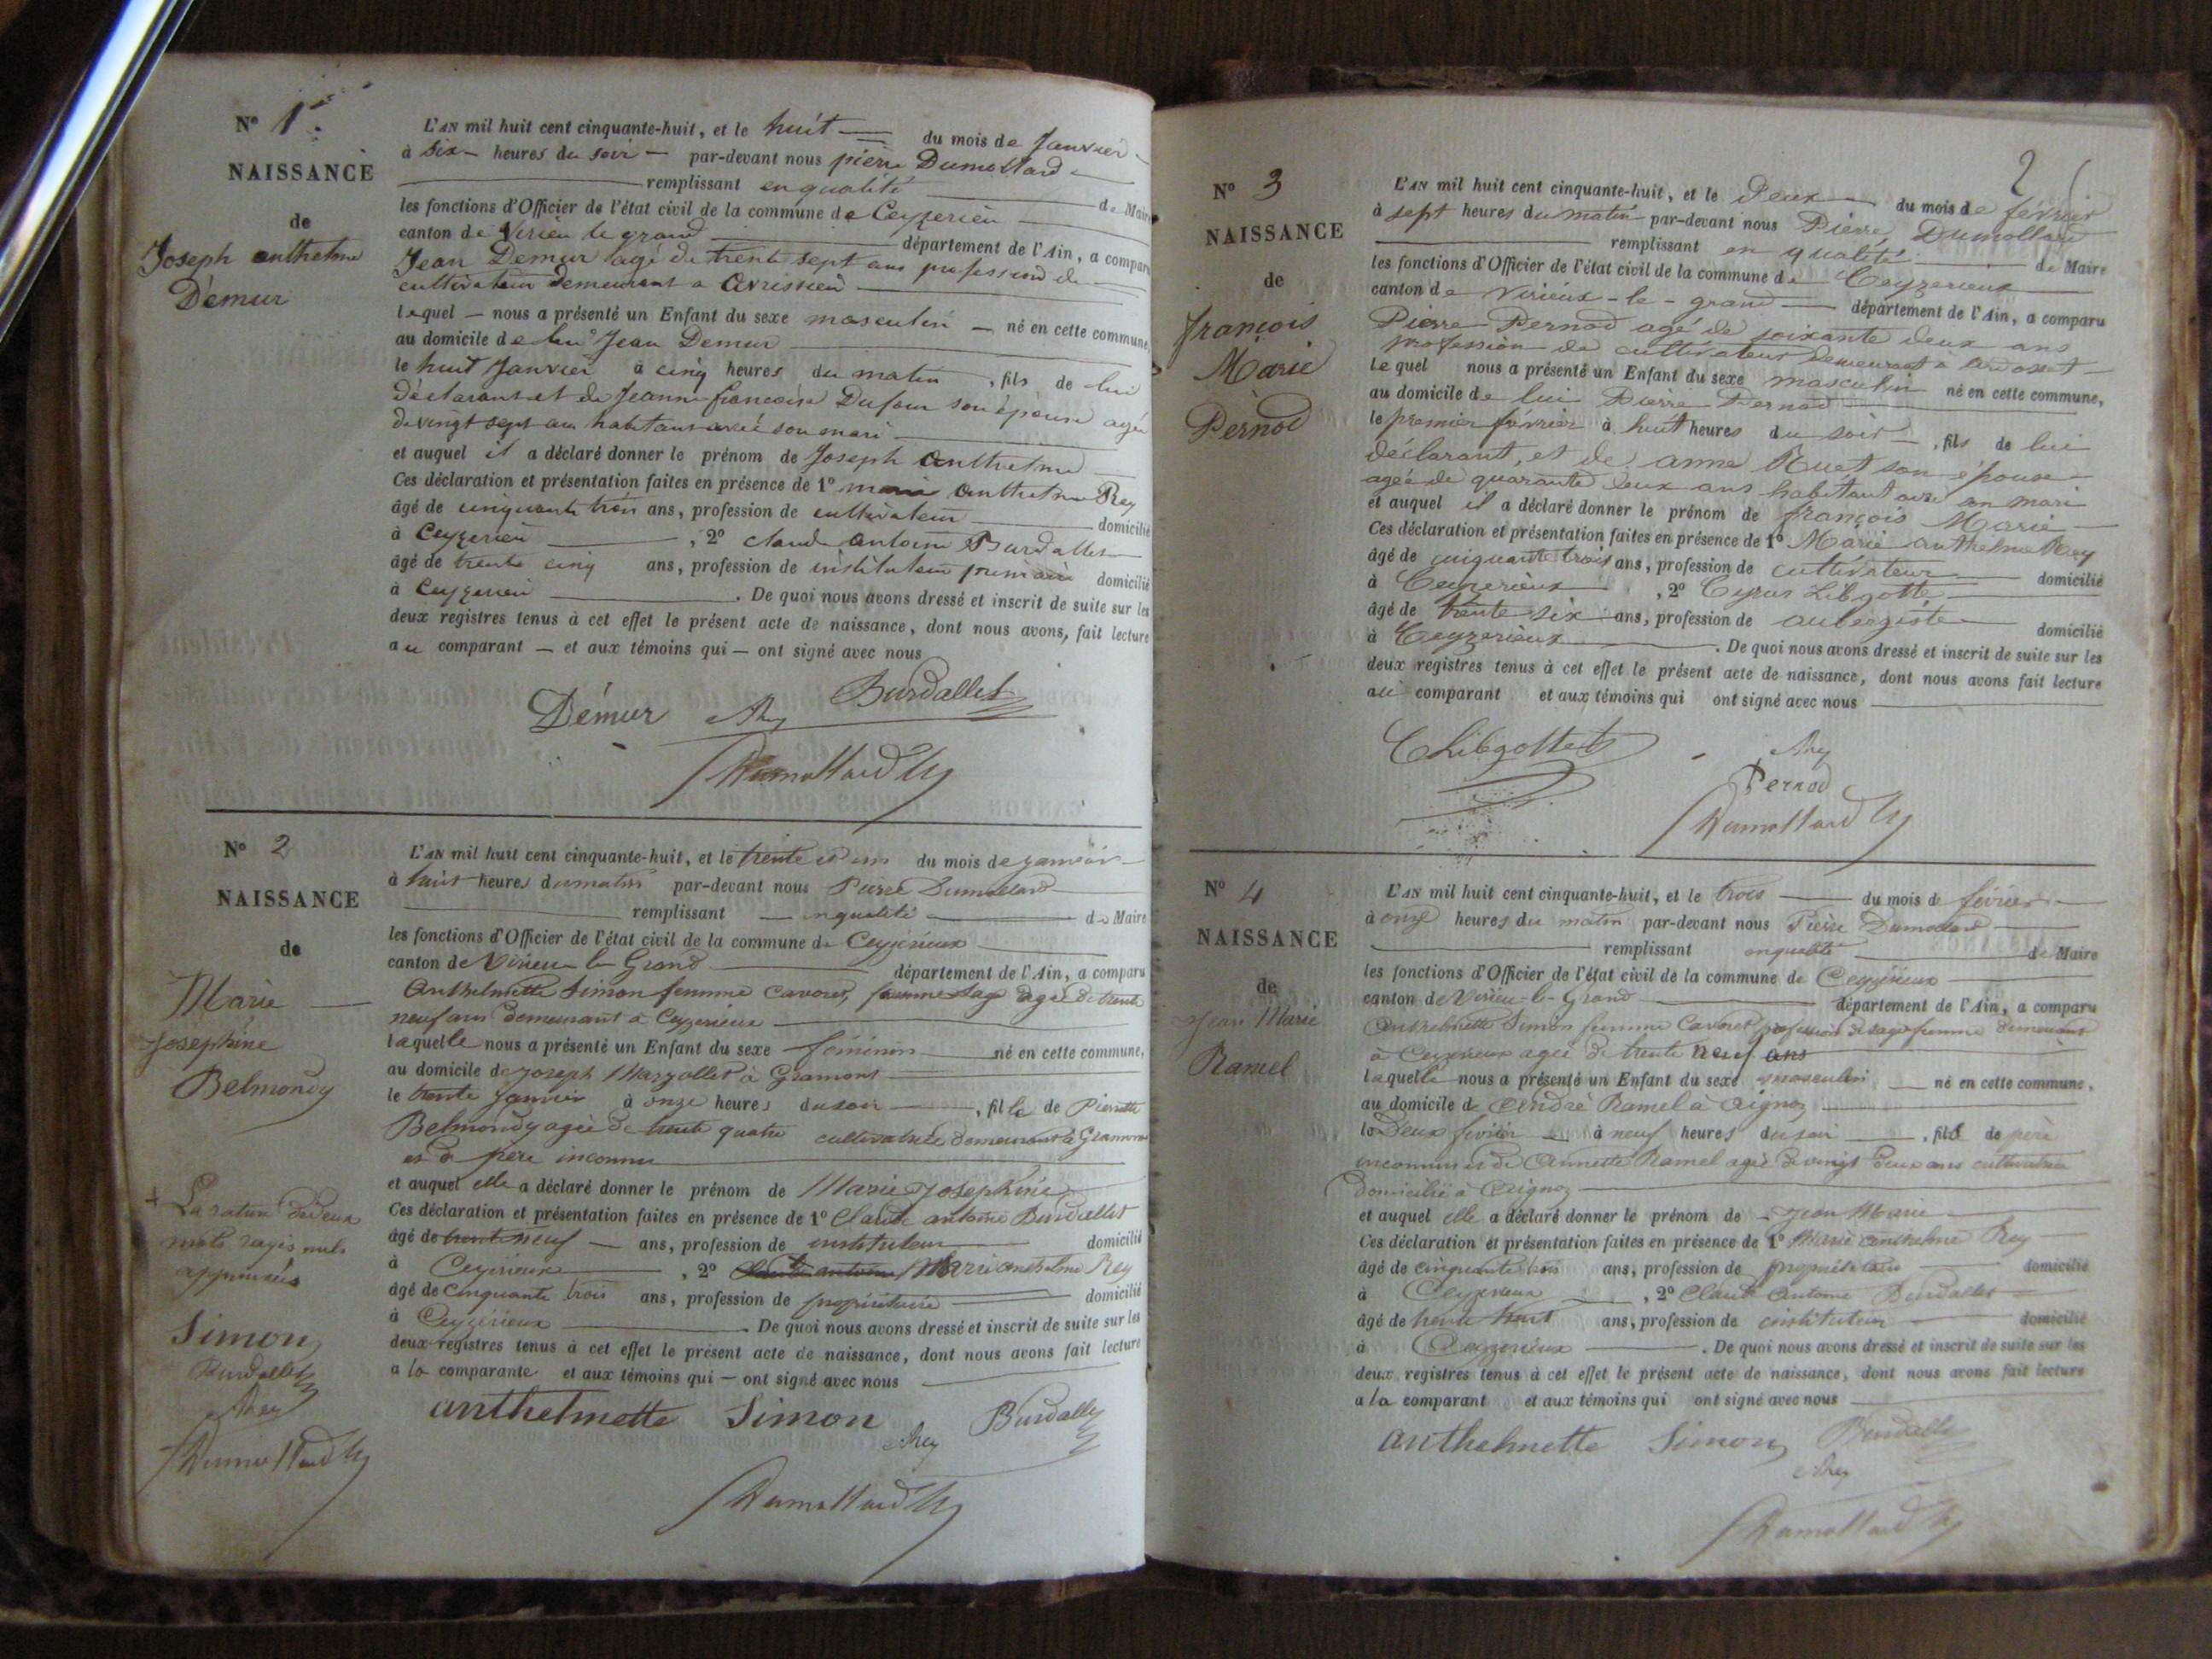 N° 1.
NAISSANCE
de
Joseph anthelme
Démur
L'AN mil huit cent cinquante-huit, et le huit du mois de Janvier
à Six heures du soir par-devant nous pierre Dumollard
remplissant en qualité de Maire
les fonctions d'Officier de l'état civil de la commune de Ceyzerieu
canton de Virieu le grand département de l'Ain, a comparu
Jean Demur agé de trente sept ans profession de
cultivateur demeurant a Avrissieu
lequel nous a présenté un Enfant du sexe masculin né en cette commune,
au domicile de lui Jean Demur
le huit Janvier à cinq heures du matin, fils de lui
déclarant et de Jeanne françoise Dufour son épouse agée
de vingt sept ans habitant avec son mari
et auquel il a déclaré donner le prénom de Joseph Anthelme
Ces déclaration et présentation faites en présence de 1° marie Anthelme Rey
âgé de cinquante trois ans, profession de cultivateur domicilié
à Ceyzerieu, 2° claude Antoine Burdallet
âgé de trente cinq ans, profession de instituteur primaire domicilié
à Ceyzerieu. De quoi nous avons dressé et inscrit de suite sur les
deux registres tenus à cet effet le présent acte de naissance, dont nous avons, fait lecture
au comparant et aux témoins qui ont signé avec nous
Démur Rey Burdallet
Dumollard
N° 2
NAISSANCE
de
Marie
Joséphine
Belmondy
+ La rature de deux
mots rayés nuls
approuvés
Simon
Burdallet
Rey
Dumollard
L'AN mil huit cent cinquante-huit, et le trente et un du mois de janvier
à huit heures du matin par-devant nous Pierre Dumollard
remplissant en qualité de Maire
les fonctions d'Officier de l'état civil de la commune de Ceyzerieux
canton de Virieu le Grand département de l'Ain, a comparu
Anthelmette Simon femme Cavoret, femme Sage agée de trente
neuf ans demeurant à Ceyzerieux
laquelle nous a présenté un Enfant du sexe féminin né en cette commune,
au domicile de joseph Marjollet à Gramont
le trente Janvier à onze heures du soir, fille de Pierrette
Belmondy agée de trente quatre cultivatrice demeurant à Gramont
et de père inconnu
et auquel elle a déclaré donner le prénom de Marie Joséphine
Ces déclaration et présentation faites en présence de 1° Claude antoine Burdallet
âgé de trente neuf ans, profession de instituteur domicilié
à Ceyzerieux, 2° Claude antoine Marie anthelme Rey
âgé de Cinquante trois ans, profession de propriétaire domicilié
à Ceyzerieux. De quoi nous avons dressé et inscrit de suite sur les
deux registres tenus à cet effet le présent acte de naissance, dont nous avons fait lecture
a la comparante et aux témoins qui ont signé avec nous
anthelmette Simon Burdallet
Rey
Dumollard
2
N° 3
NAISSANCE
de
françois
Marie
Pernod
L'AN mil huit cent cinquante-huit, et le Deux du mois de février
à sept heures du matin par-devant nous Pierre Dumollard
remplissant en qualité de Maire
les fonctions d'Officier de l'état civil de la commune de Ceyzerieux
canton de Virieux-le-grand département de l'Ain, a comparu
Pierre Pernod agé de soixante deux ans
profession de cultivateur demeurant à ardosset
Lequel nous a présenté un Enfant du sexe masculin né en cette commune,
au domicile de lui Pierre Pernod
le premier février à huit heures du soir, fils de lui
déclarant, et de anne Ruet son épouse
agée de quarante deux ans habitant avec son mari
et auquel il a déclaré donner le prénom de françois Marie
Ces déclaration et présentation faites en présence de 1° Marie anthelme Rey
âgé de cinquante trois ans, profession de cultivateur domicilié
à Ceyzerieux, 2° Cyrus Libgotte
âgé de trente six ans, profession de aubergiste domicilié
à Ceyzerieux. De quoi nous avons dressé et inscrit de suite sur les
deux registres tenus à cet effet le présent acte de naissance, dont nous avons fait lecture
au comparant et aux témoins qui ont signé avec nous
C Libgotte Rey
Pernod
Dumollard
N° 4
NAISSANCE
de
Jean Marie
Ramel
L'AN mil huit cent cinquante-huit, et le trois du mois de février
à onze heures du matin par-devant nous Pierre Dumollard
remplissant en qualité de Maire
les fonctions d'Officier de l'état civil de la commune de Ceyzerieux
canton de Virieu-le-Grand département de l'Ain, a comparu
Anthelmette Simon femme Cavoret profession de sage femme demeurant
à Ceyzerieux agée de trente neuf ans
laquelle nous a présenté un Enfant du sexe masculin né en cette commune,
au domicile de André Ramel à Aignoz
le Deux février à neuf heures du soir, fils de père
inconnu et de Annette Ramel agée de vingt deux ans cultivatrice
domiciliée à Aignoz
et auquel elle a déclaré donner le prénom de Jean Marie
Ces déclaration et présentation faites en présence de 1° Marie anthelme Rey
âgé de cinquante trois ans, profession de propriétaire domicilié
à Ceyzerieux, 2° Claude Antoine Burdallet
âgé de trente ans, profession de instituteur domicilié
à Ceyzerieux. De quoi nous avons dressé et inscrit de suite sur les
deux registres tenus à cet effet le présent acte de naissance, dont nous avons fait lecture
a la comparant et aux témoins qui ont signé avec nous
anthelmette Simon Burdallet
Rey
Dumollard